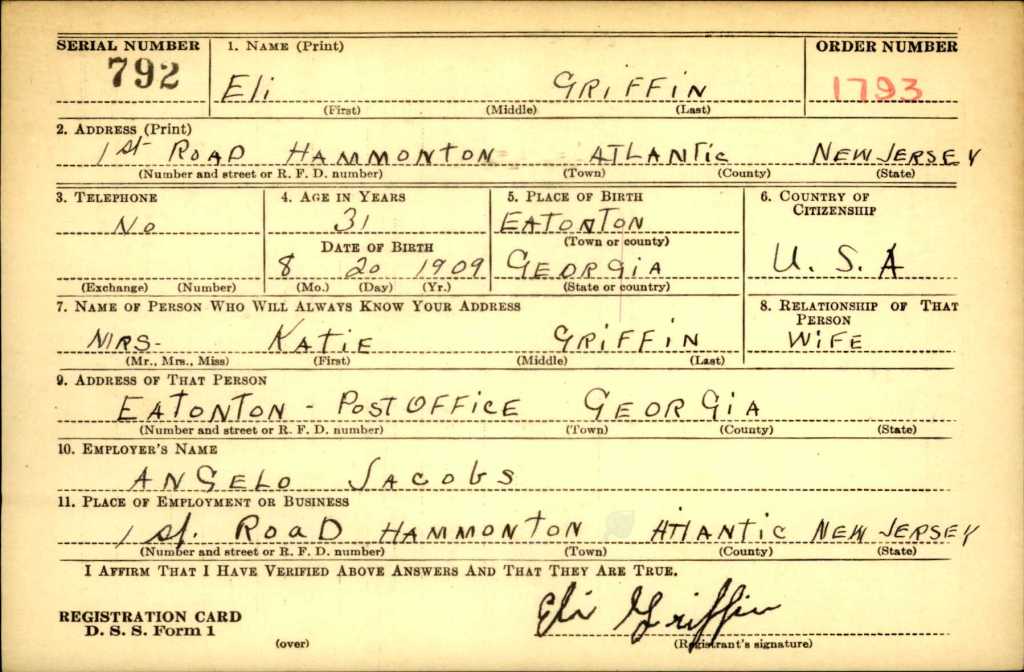 SERIAL NUMBER 1. NAME (Print) ORDER NUMBER
792 Eli GRIFFIN 1793
(First) (Middle) (Last)
2. ADDRESS (Print)
1st ROAD HAMMONTON ATLANTIC NEW JERSEY
(Number and street or R. F. D. number) (Town) (County) (State)
3. TELEPHONE 4. AGE IN YEARS 5. PLACE OF BIRTH 6. COUNTRY OF CITIZENSHIP
No 31 EATONTON
DATE OF BIRTH (Town or county)
8 20 1909 GEORGIA U. S. A
(Exchange) (Number) (Mo.) (Day) (Yr.) (State or country)
7. NAME OF PERSON WHO WILL ALWAYS KNOW YOUR ADDRESS 8. RELATIONSHIP OF THAT PERSON
MRS- KATIE GRIFFIN WIFE
(Mr., Mrs., Miss) (First) (Middle) (Last)
9. ADDRESS OF THAT PERSON
EATONTON - POST OFFICE GEORGIA
(Number and street or R. F. D. number) (Town) (County) (State)
10. EMPLOYER'S NAME
ANGELO JACOBS
11. PLACE OF EMPLOYMENT OR BUSINESS
1 st. ROAD HAMMONTON ATLANTIC NEW JERSEY
(Number and street or R. F. D. number) (Town) (County) (State)
I AFFIRM THAT I HAVE VERIFIED ABOVE ANSWERS AND THAT THEY ARE TRUE.
REGISTRATION CARD Eli Griffin
D. S. S. Form 1 (over) (Registrant's signature)